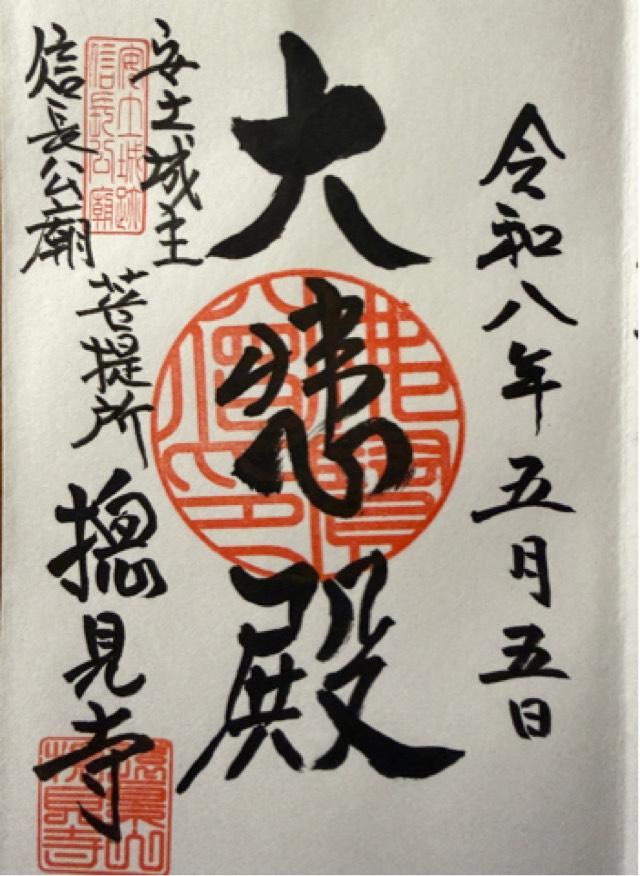 令和八年五月五日
大悲殿
安土城主
信長公廟
菩提所
摠見寺
安土城跡
信長公廟
遠景山
摠見寺